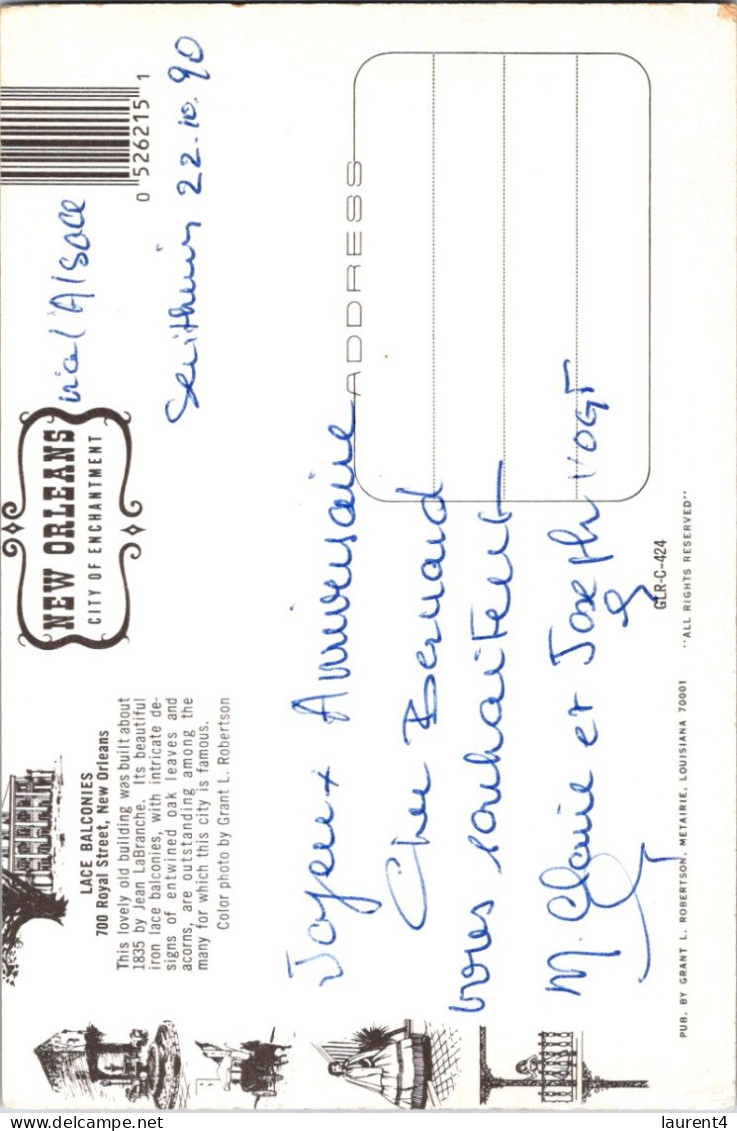 NEW ORLEANS
CITY OF ENCHANTMENT
0 526215 1
LACE BALCONIES
700 Royal Street, New Orleans
This lovely old building was built about
1835 by Jean LaBranche. Its beautiful
iron lace balconies, with intricate de-
signs of entwined oak leaves and
acorns, are outstanding among the
many for which this city is famous.
Color photo by Grant L. Robertson
l'Alsace
22.10.90
Joyeux Anniversaire
Cher Bernard
vous souhaitent
M. Claire et Joseph VOGT
ADDRESS
GLR-C-424
PUB. BY GRANT L. ROBERTSON, METAIRIE, LOUISIANA 70001 "ALL RIGHTS RESERVED"
laurent4
delcampe.net